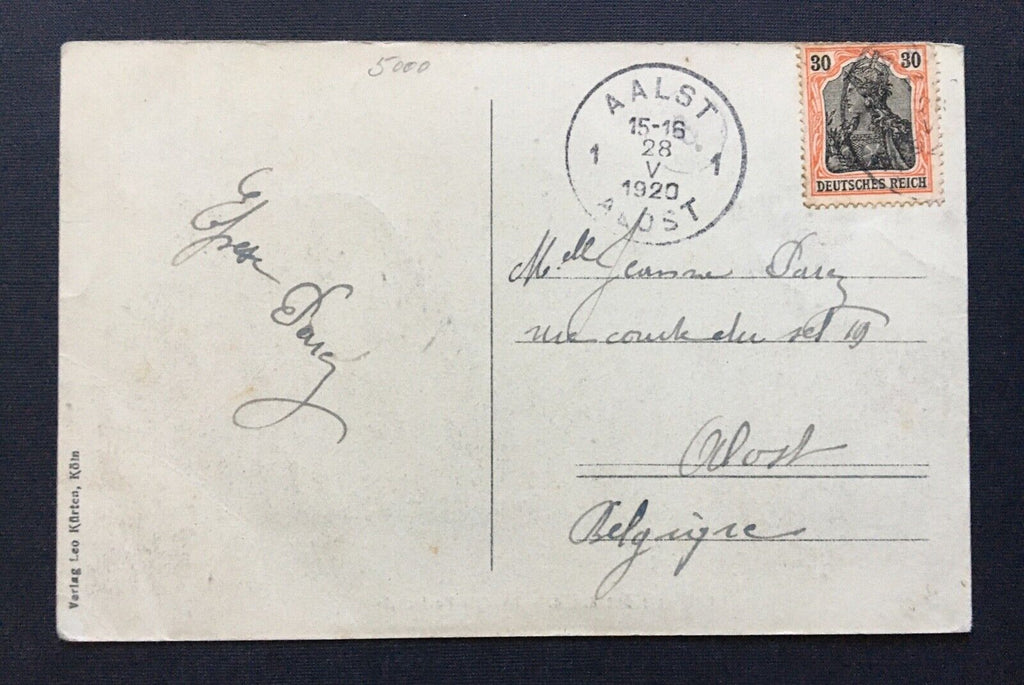 5000
AALST
15-16
28
1 V 1
1920
ALOST
30 30
DEUTSCHES REICH
Parez
Melle Jeanne Parez
rue courte du sel 19
Alost
Belgique
Verlag Leo Kürten, Köln